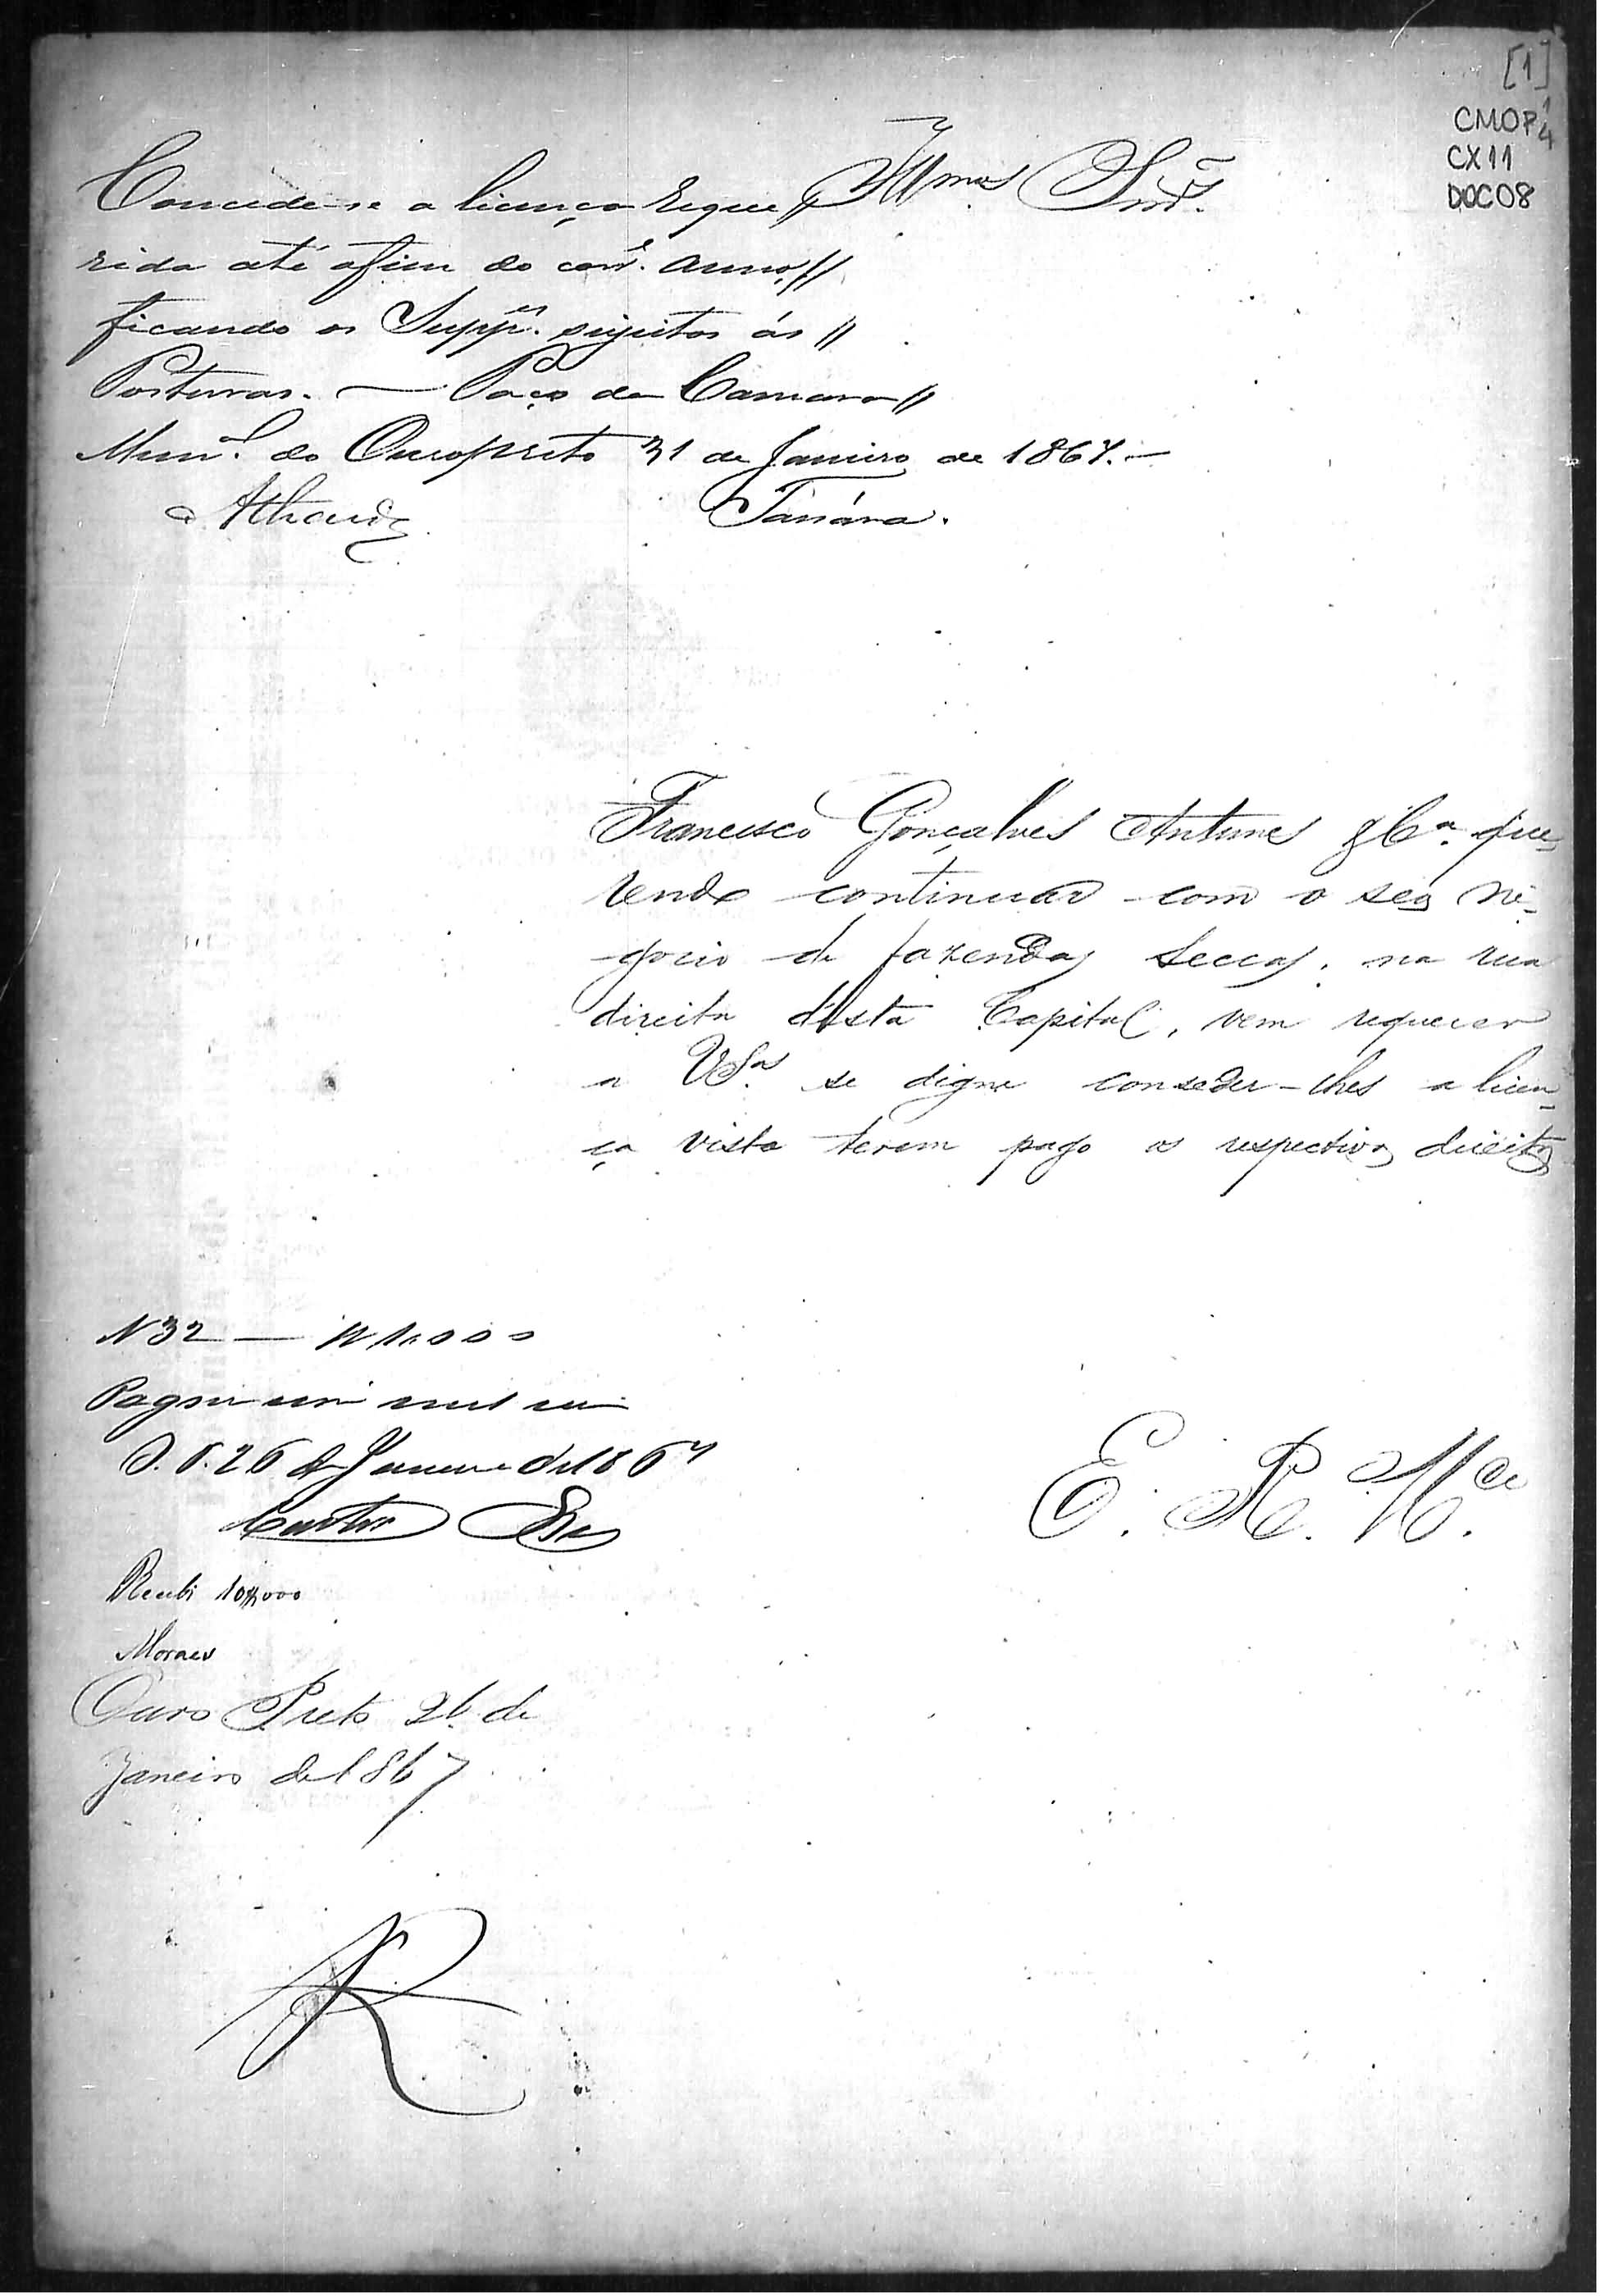 [1]
CMOP 1/4
CX 11
DOC 08
Illmos. Snrs.
Concede-se a licença reque //
rida até o fim do corre. anno, //
ficando os Suppes. sugeitos ás //
Posturas. — Paço da Camara //
Munal. do Ouropreto 31 de Janeiro de 1867. —
Francisco Gonçalves Antunes & Ca. que-
rendo continuar com o seu ne-
gocio de fazendas seccas, na rua
direita desta Capital, vem requerer
a VSas. se digne conseder-lhes a licen-
ça visto terem pago os respectivos direitos
E. R. Mce.
N 32 — 1000
Pagou um mil reis
O. P. 26 de Janeiro de 1867
Castro
Recebi 10$000
Moraes
Ouro Preto 26 de
Janeiro de 1867